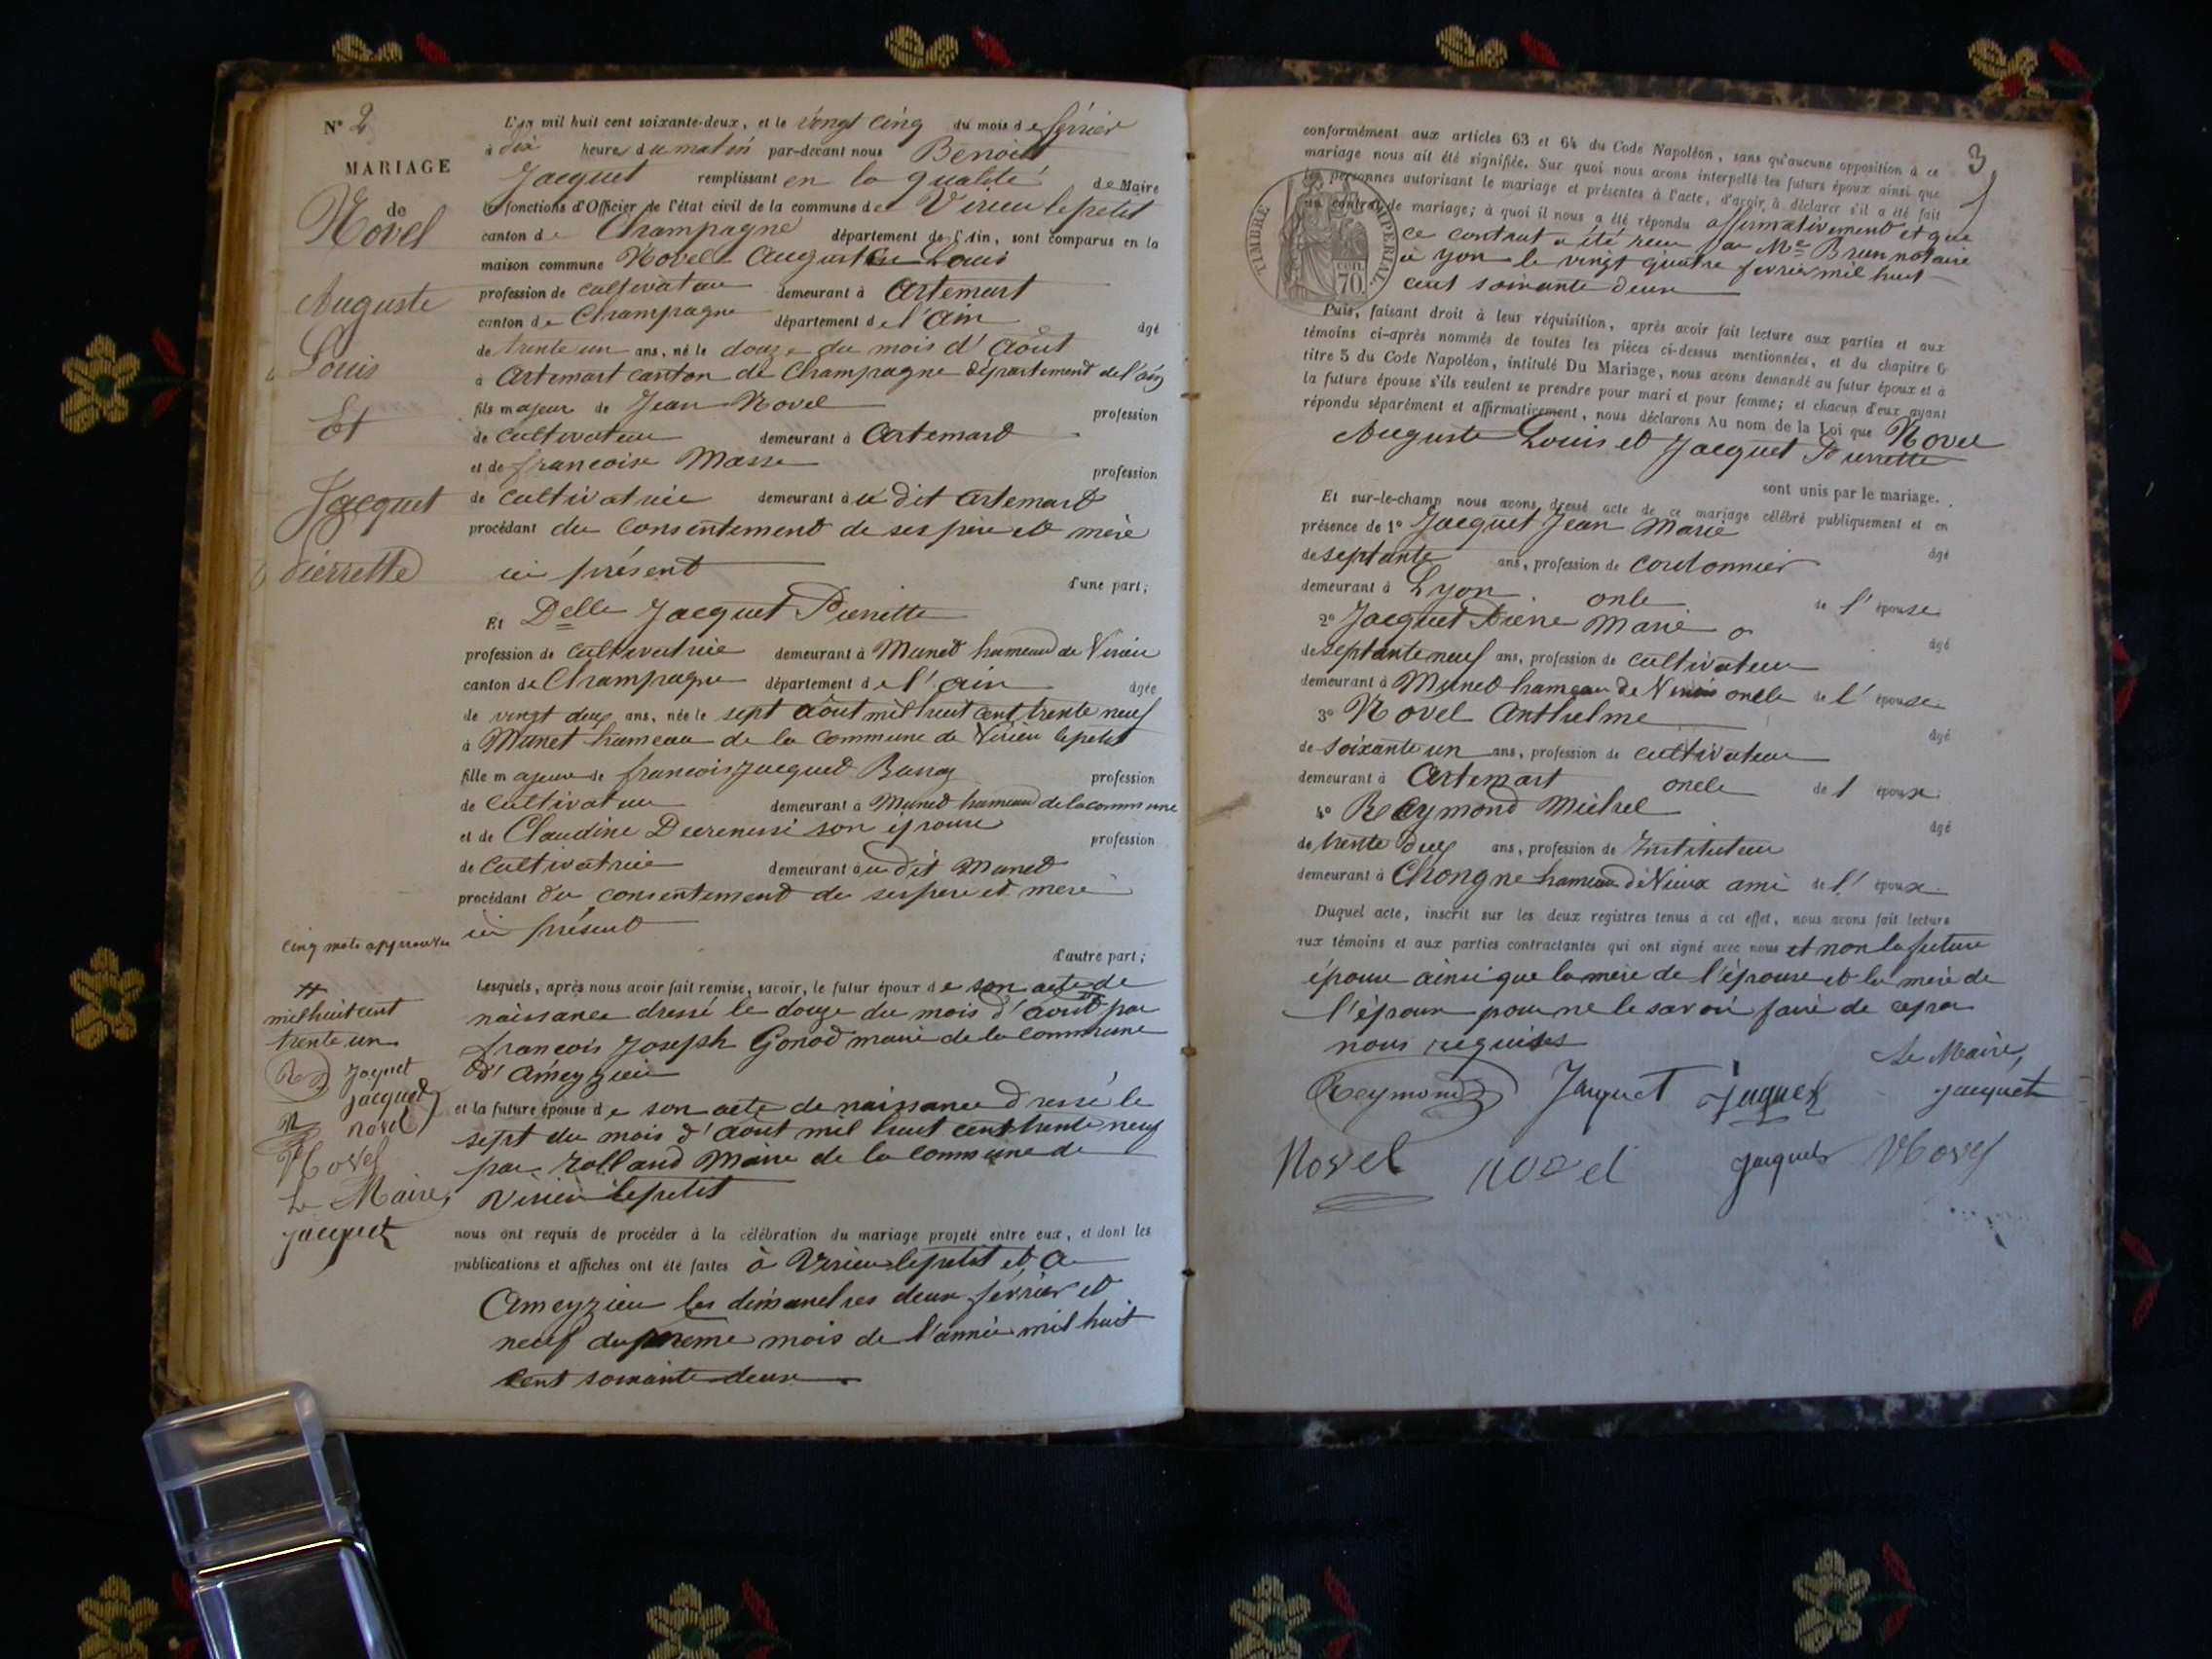 N° 2
MARIAGE
de
Novel
Auguste
Louis
Et
Jacquet
Pierrette
L'an mil huit cent soixante-deux, et le vingt cinq du mois de février
à dix heures du matin par-devant nous Benoit
Jacquet remplissant en la qualité de Maire
les fonctions d'Officier de l'état civil de la commune de Virieu le petit
canton de Champagne département de l'Ain, sont comparus en la
maison commune Novel Auguste Louis
profession de cultivateur demeurant à Artemart
canton de Champagne département de l'ain âgé
de trente un ans, né le douze du mois d'Août
à Artemart canton de Champagne département de l'ain
fils majeur de Jean Novel profession
de cultivateur demeurant à Artemard
et de francoise Masse profession
de cultivatrice demeurant à u dit Artemard
procédant du consentement de ses père et mère
ici présent d'une part;
Et Delle Jacquet Pierrette
profession de cultivatrice demeurant à Muned hameau de Virieu
canton de Champagne département de l'ain âgée
de vingt deux ans, née le sept Août mil huit cent trente neuf
à Munet hameau de la commune de Virieu le petit
fille majeure de francois Jacquet profession
de cultivateur demeurant à Muned hameau de la commune
et de Claudine son épouse profession
de cultivatrice demeurant à u dit Muned
procédant du consentement de ses père et mère
ici présent
d'autre part;
Cinq mots approuvés
mil huit cent
trente un
Jaquet
Jacquet
Novel
Novel
Le Maire,
Jacquet
Lesquels, après nous avoir fait remise, savoir, le futur époux de son acte de
naissance dressé le douze du mois d'août par
francois Joseph Gonod maire de la commune
d'Ameyzieu
et la future épouse de son acte de naissance dressé le
sept du mois d'août mil huit cent trente neuf
par Rolland Maire de la commune de
Virieu le petit
nous ont requis de procéder à la célébration du mariage projeté entre eux, et dont les
publications et affiches ont été faites à Virieu le petit et a
Ameyzieu les dimanches deux février et
neuf du meme mois de l'année mil huit
cent soixante deux
3
conformément aux articles 63 et 64 du Code Napoléon, sans qu'aucune opposition à ce
mariage nous ait été signifiée. Sur quoi nous avons interpellé les futurs époux ainsi que
les personnes autorisant le mariage et présentes à l'acte, d'avoir à déclarer s'il a été fait
un contrat de mariage; à quoi il nous a été répondu affirmativement et que
ce contrat a été reçu par Me Brun notaire
à yon le vingt quatre fevrier mil huit
cent soixante deux
TIMBRE IMPERIAL
70
Puis, faisant droit à leur réquisition, après avoir fait lecture aux parties et aux
témoins ci-après nommés de toutes les pièces ci-dessus mentionnées, et du chapitre 6
titre 5 du Code Napoléon, intitulé Du Mariage, nous avons demandé au futur époux et à
la future épouse s'ils veulent se prendre pour mari et pour femme; et chacun d'eux ayant
répondu séparément et affirmativement, nous déclarons Au nom de la Loi que Novel
Auguste Louis et Jacquet Pierrette
sont unis par le mariage.
Et sur-le-champ nous avons dressé acte de ce mariage célébré publiquement et en
présence de 1° Jacquet Jean Marie âgé
de septante ans, profession de cordonnier
demeurant à Lyon oncle de l'épouse
2° Jacquet Pierre Marie âgé
de septante neuf ans, profession de cultivateur
demeurant à Muned hameau de Virieu oncle de l'épouse
3° Novel Anthelme âgé
de soixante un ans, profession de cultivateur
demeurant à Artemart oncle de l époux
4° Reymond Michel âgé
de trente deux ans, profession de Instituteur
demeurant à Chongne hameau de Virieux ami de l'époux
Duquel acte, inscrit sur les deux registres tenus à cet effet, nous avons fait lecture
aux témoins et aux parties contractantes qui ont signé avec nous et non la future
épouse ainsi que la mère de l'épouse et la mère de
l'époux pour ne le savoir faire de ce par
nous requises
Le Maire,
Reymond Jacquet Jaquet Jacquet
Novel Novel Jacquet Novel